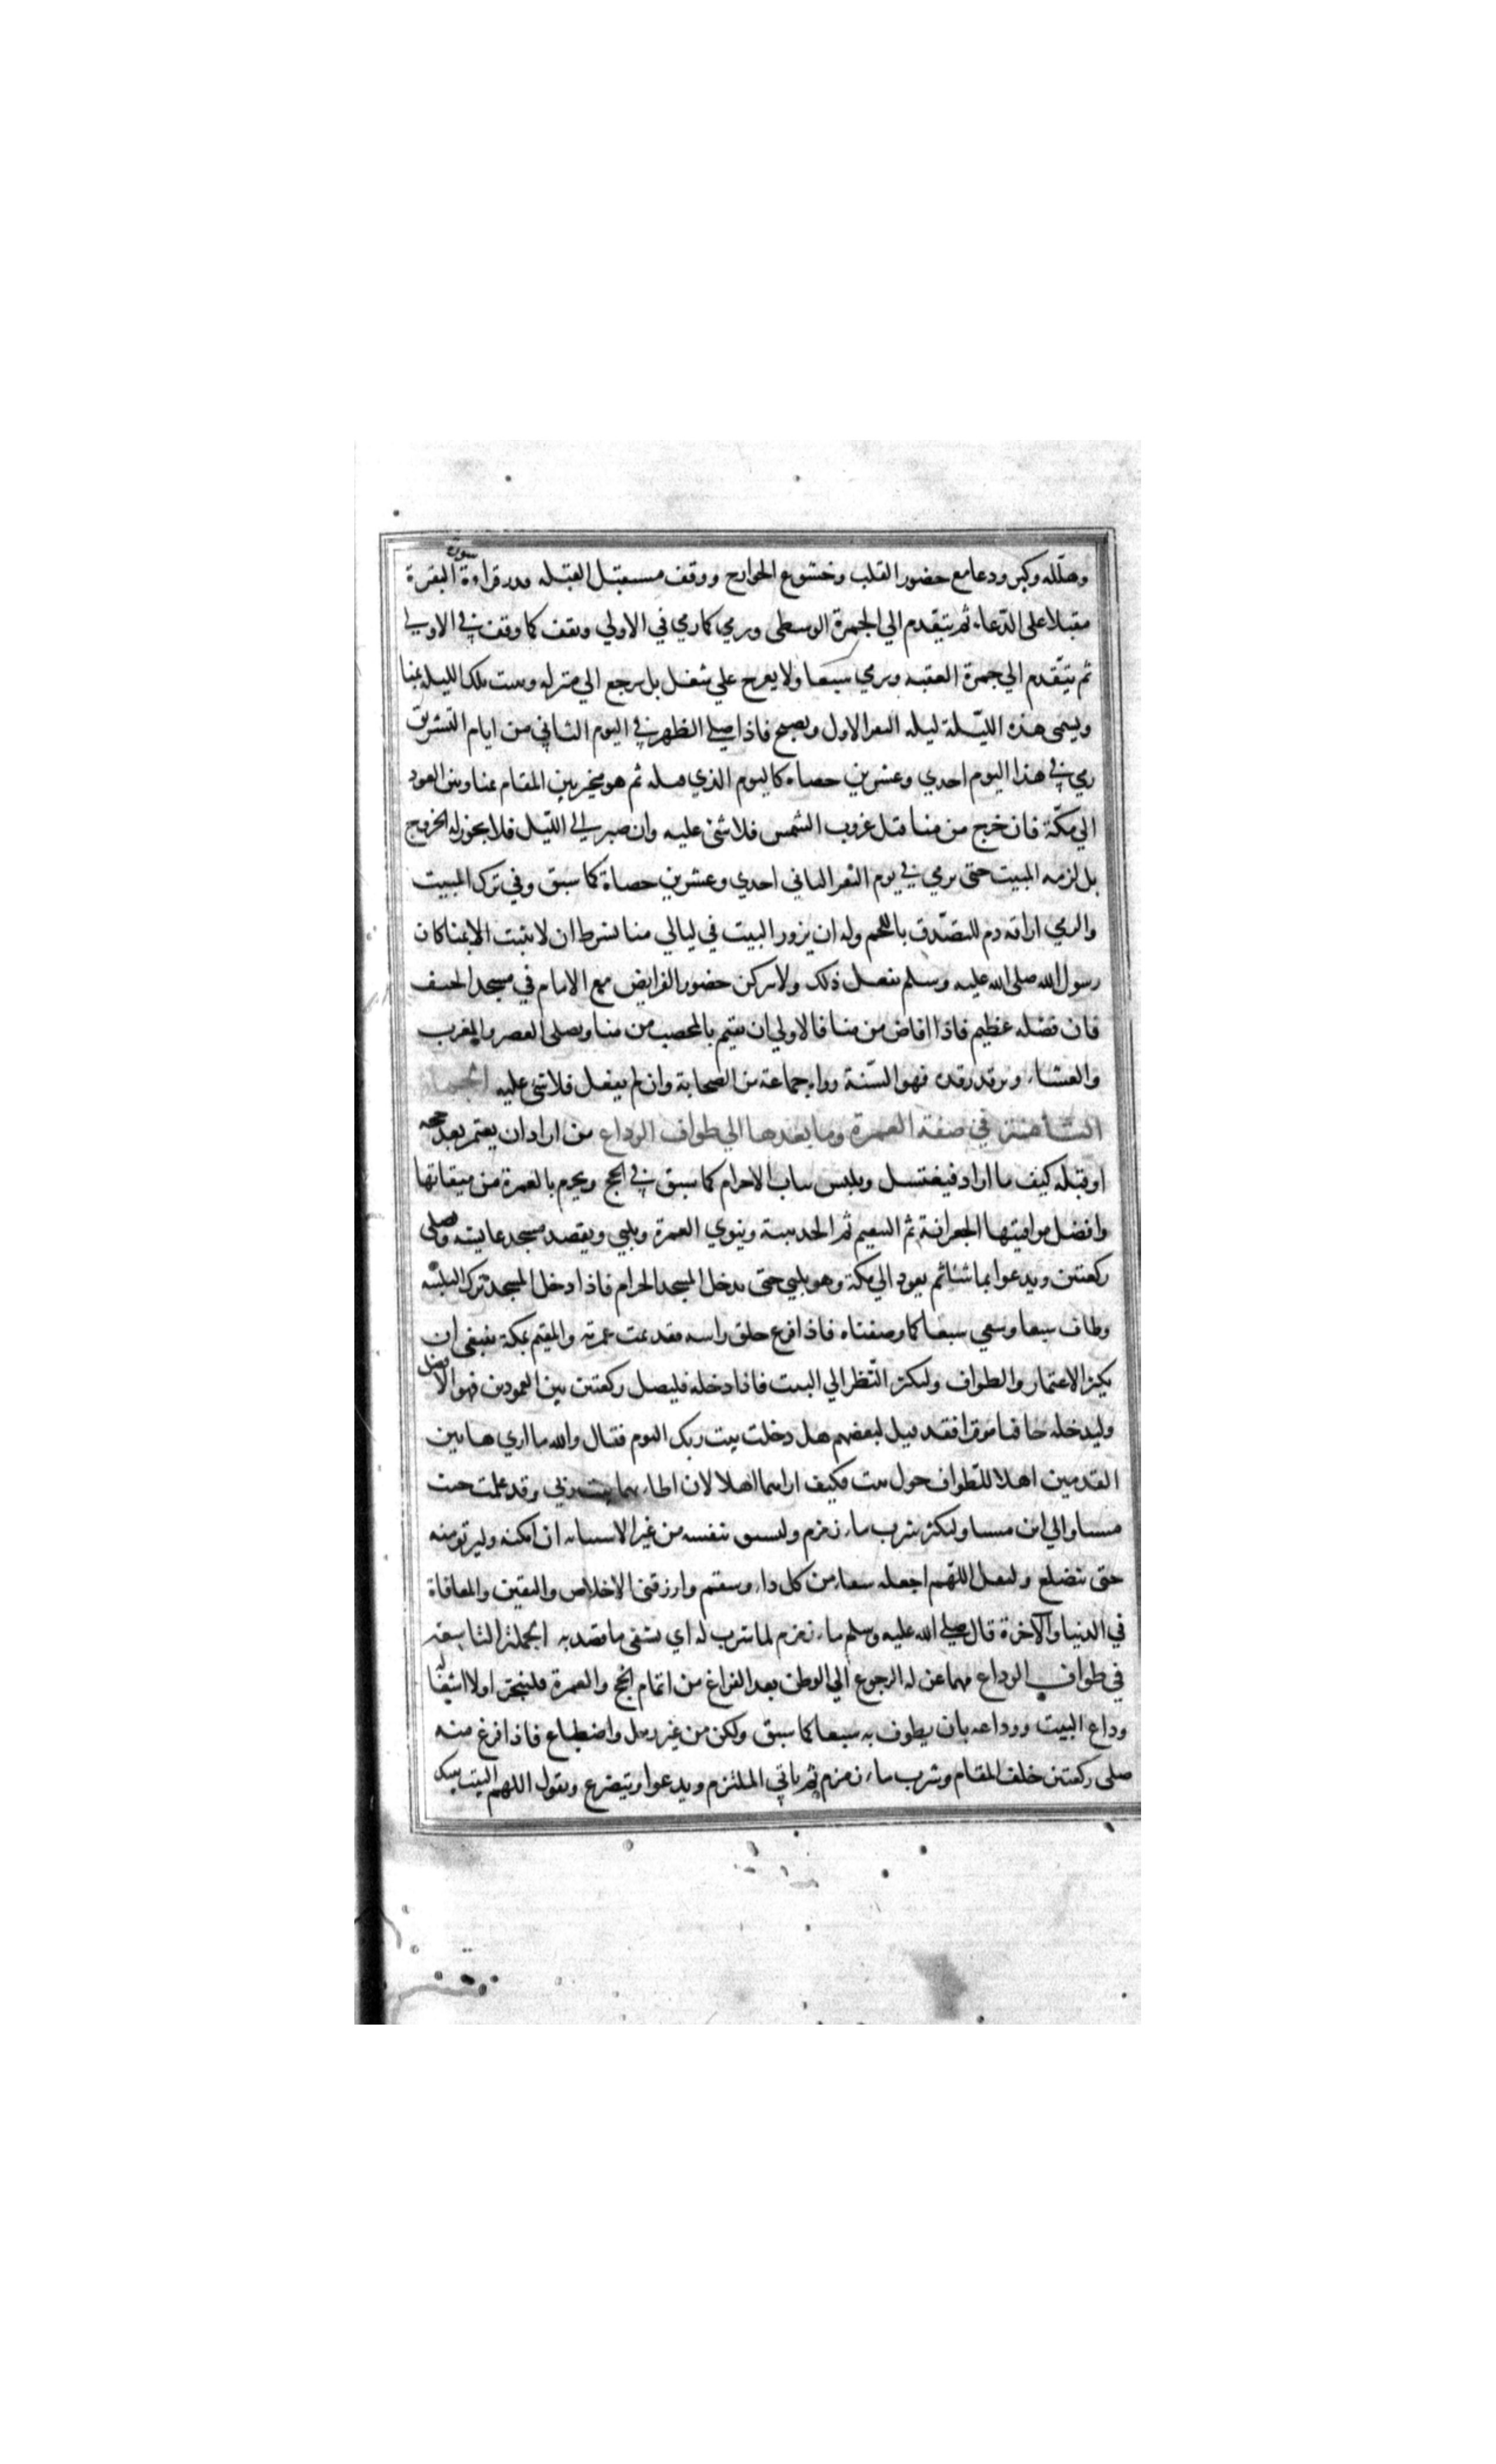 وهلله وكبر ودعا مع حضور القلب وخشوع الجوارح ووقف مستقبل القبله قدر قراءة سورة البقرة
مقبلا على الدعاء ثم يتقدم الي الجمرة الوسطى ويرمي كما رمي في الاولي ويقف كما وقف في الاولي
ثم يتقدم الي جمرة العقبه ويرمي سبعا ولا يعرج علي شغل بل يرجع الي منزله ويبيت تلك الليله بمنا
ويسمى هذه الليلة ليله النفر الاول ويصبح فاذا صلي الظهر في اليوم الثاني من ايام التشريق
رمي في هذا اليوم احدي وعشرين حصاه كاليوم الذي قبله ثم هو مخير بين المقام بمنا وبين العود
الي مكة فان خرج من منا قبل غروب الشمس فلا شئ عليه وان صبر الي الليل فلا يجوز له الخروج
بل لزمه المبيت حتى يرمي في يوم النفر الثاني احدي وعشرين حصاة كما سبق وفي ترك المبيت
والرمي اراقه دم للتصدق باللحم وله ان يزور البيت في ليالي منا بشرط ان لا يبيت الا بمنا كان
رسول الله صلى الله عليه وسلم يفعل ذلك ولا يتركن حضور الفرايض مع الامام في مسجد الخيف
فان فضله عظيم فاذا افاض من منا فالاولي ان يقيم بالمحصب من منا ويصلى العصر والمغرب
والعشاء ويرقد رقده فهو السنة رواه جماعة من الصحابة وان لم يفعل فلا شئ عليه الجملة
الثامنة في صفة العمرة وما بعدها الي طواف الوداع من اراد ان يعتمر بعد حجه
او قبله كيف ما اراد فيغتسل ويلبس ثياب الاحرام كما سبق في الحج ويحرم بالعمرة من ميقاتها
وافضل مواقيتها الجعرانة ثم التنعيم ثم الحديبية وينوي العمرة ويلبي ويقصد مسجد عايشه ويصلي
ركعتين ويدعوا بما شاء ثم يعود الي مكة وهو يلبي حتى يدخل المسجد الحرام فاذا دخل المسجد ترك التلبيه
وطاف سبعا وسعي سبعا كما وصفناه فاذا فرغ حلق راسه فقد تمت عمرته والمقيم بمكة ينبغي ان
يكثر الاعتمار والطواف وليكثر النظر الي البيت فاذا دخله فليصل ركعتين بين العمودين فهو الافضل
وليدخله حافيا موقرا فقد قيل لبعضهم هل دخلت بيت ربك اليوم فقال والله ما اري هاتين
القدمين اهلا للطواف حول بيت فكيف اراهما اهلا لان اطاء بهما بيت ربي وقد علمت حيث
مشيا والي اين مشيا وليكثر شرب ماء زمزم وليستق بنفسه من غير الاستنابه ان امكنه وليرتو منه
حتى يتضلع وليقل اللهم اجعله شفاء من كل داء وسقم وارزقني الاخلاص واليقين والمعافاة
في الدنيا والآخرة قال صلي الله عليه وسلم ماء زمزم لما شرب له اي يشفي ما قصد به الجملة التاسعة
في طواف الوداع مهما عن له الرجوع الي الوطن بعد الفراغ من اتمام الحج والعمرة فلينجز اولا اشغاله
وداع البيت ووداعه بان يطوف به سبعا كما سبق ولكن من غير رمل واضطباع فاذا فرغ منه
صلى ركعتين خلف المقام وشرب ماء زمزم ثم ياتي الملتزم ويدعوا ويتضرع ويقول اللهم البيت بيتك